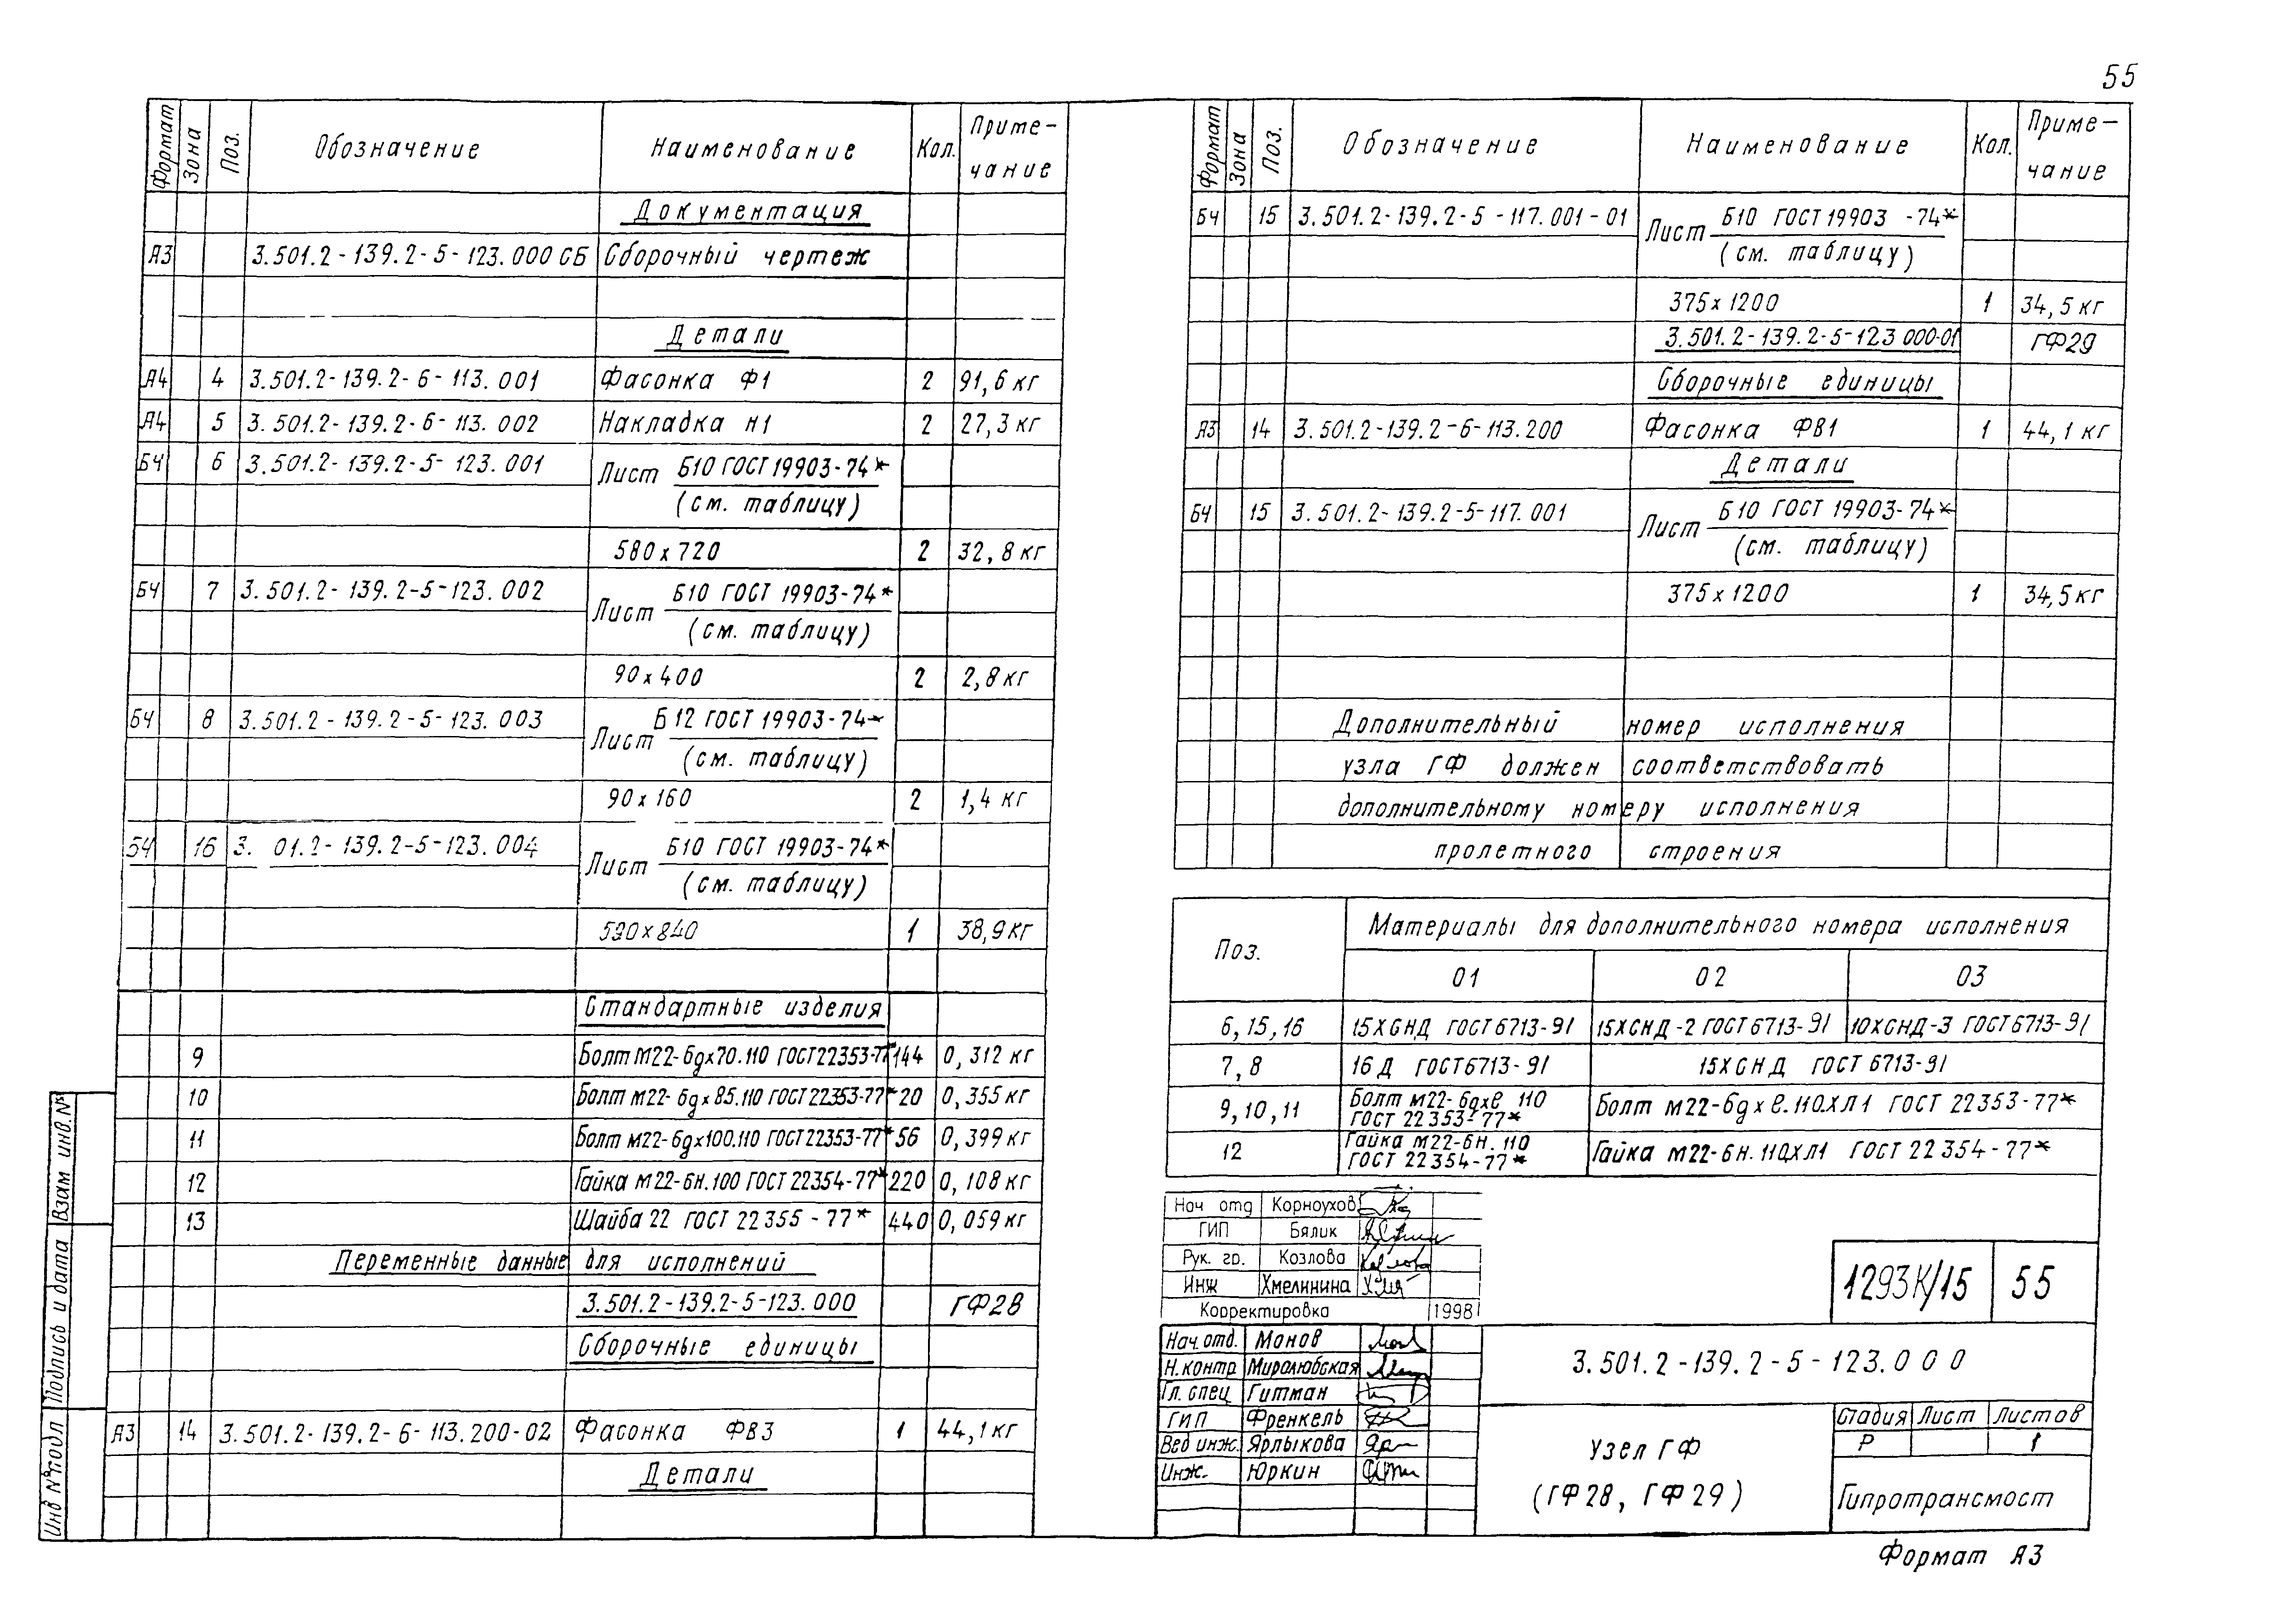 55
Формат Зона Поз. Обозначение Наименование Кол. Приме-чание
Документация
А3 3.501.2-139.2-5-123.000 СБ Сборочный чертеж
Детали
А4 4 3.501.2-139.2-6-113.001 Фасонка Ф1 2 91,6 кг
А4 5 3.501.2-139.2-6-113.002 Накладка Н1 2 27,3 кг
БЧ 6 3.501.2-139.2-5-123.001 Лист Б10 ГОСТ 19903-74*
(см. таблицу)
580х720 2 32,8 кг
БЧ 7 3.501.2-139.2-5-123.002 Лист Б10 ГОСТ 19903-74*
(см. таблицу)
90х400 2 2,8 кг
БЧ 8 3.501.2-139.2-5-123.003 Лист Б12 ГОСТ 19903-74*
(см. таблицу)
90х160 2 1,4 кг
БЧ 16 3. 01.2-139.2-5-123.004 Лист Б10 ГОСТ 19903-74*
(см. таблицу)
590х840 1 38,9 кг
Стандартные изделия
9 Болт М22-6gх70.110 ГОСТ 22353-77* 144 0,312 кг
10 Болт М22-6gх85.110 ГОСТ 22353-77* 20 0,355 кг
11 Болт М22-6gх100.110 ГОСТ 22353-77* 56 0,399 кг
12 Гайка М22-6Н.100 ГОСТ 22354-77* 220 0,108 кг
13 Шайба 22 ГОСТ 22355-77* 440 0,059 кг
Переменные данные для исполнений
3.501.2-139.2-5-123.000 ГФ28
Сборочные единицы
А3 14 3.501.2-139.2-6-113.200-02 Фасонка ФВ3 1 44,1 кг
Детали
Взам инв. №
Подпись и дата
Инв № подл
Формат Зона Поз. Обозначение Наименование Кол. Приме-чание
БЧ 15 3.501.2-139.2-5-117.001-01 Лист Б10 ГОСТ 19903-74*
(см. таблицу)
375х1200 1 34,5 кг
3.501.2-139.2-5-123 000-01 ГФ29
Сборочные единицы
А3 14 3.501.2-139.2-6-113.200 Фасонка ФВ1 1 44,1 кг
Детали
БЧ 15 3.501.2-139.2-5-117.001 Лист Б10 ГОСТ 19903-74*
(см. таблицу)
375х1200 1 34,5 кг
Дополнительный номер исполнения
узла ГФ должен соответствовать
дополнительному номеру исполнения
пролетного строения
Поз. Материалы для дополнительного номера исполнения
01 02 03
6,15,16 15ХСНД ГОСТ 6713-91 15ХСНД-2 ГОСТ 6713-91 10ХСНД-3 ГОСТ 6713-91
7,8 16Д ГОСТ 6713-91 15ХСНД ГОСТ 6713-91
9,10,11 Болт М22-6gхℓ 110 ГОСТ 22353-77* Болт М22-6gхℓ.110.ХЛ1 ГОСТ 22353-77*
12 Гайка М22-6Н.110 ГОСТ 22354-77* Гайка М22-6Н.110ХЛ1 ГОСТ 22354-77*
Нач отд Корноухов
ГИП Бялик
Рук. гр. Козлова
Инж Хмелинина
Корректировка 1998
1293К/15 55
Нач.отд. Монов
Н.контр Миролюбская
Гл. спец Гитман
ГИП Френкель
Вед инж. Ярлыкова
Инж. Юркин
3.501.2-139.2-5-123.000
Узел ГФ
(ГФ28, ГФ29)
Стадия Лист Листов
Р 1
Гипротрансмост
Формат А3